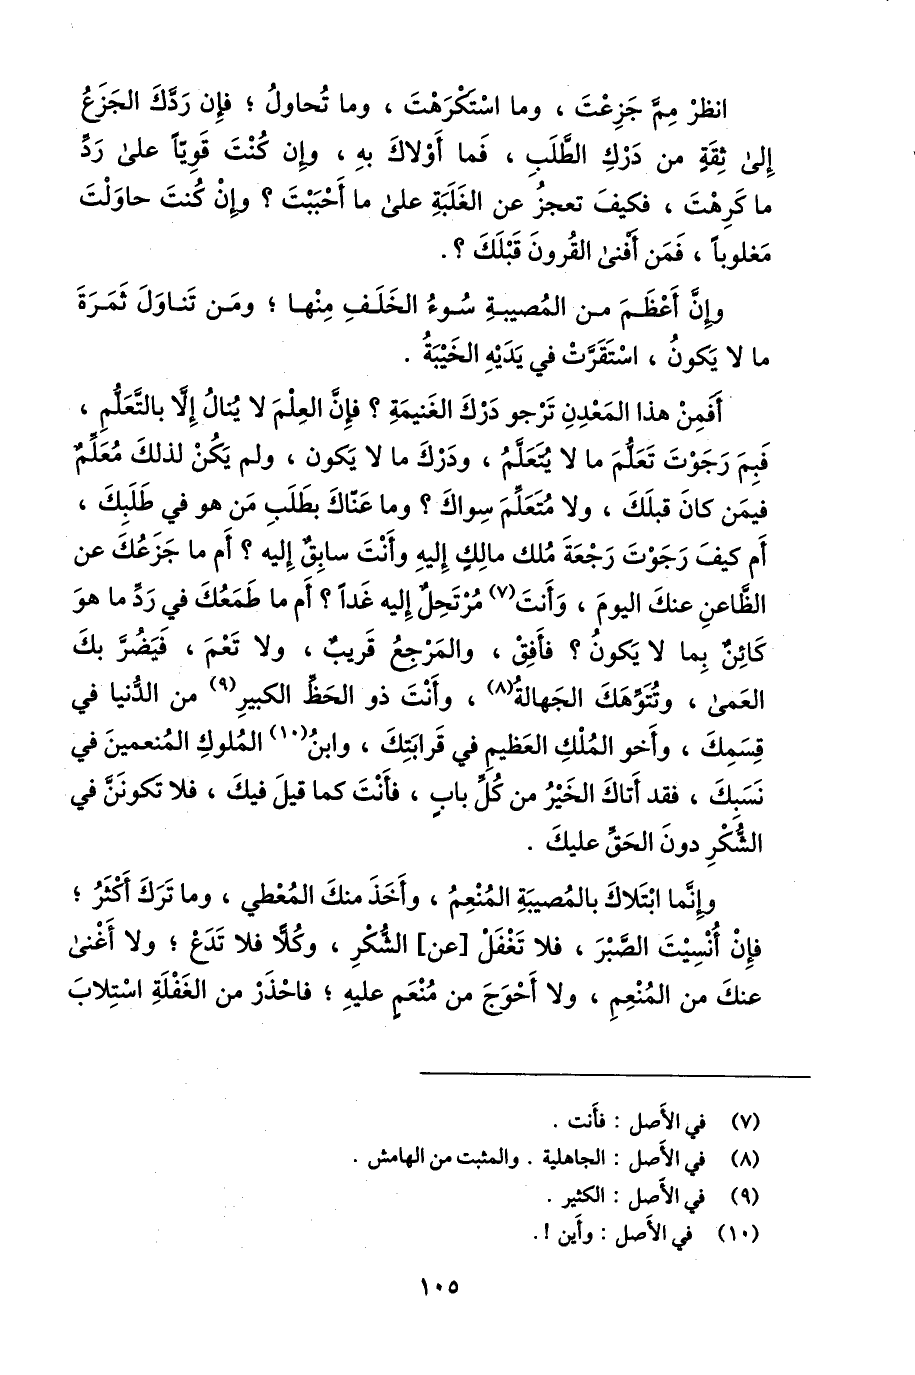 انظرْ مِمَّ جَزِعْتَ ، وما اسْتَكْرَهْتَ ، وما تُحاولُ ؛ فإِن رَدَّكَ الجَزَعُ
إِلىٰ ثِقَةٍ من دَرْكِ الطَّلَبِ ، فَما أَوْلاكَ بهِ ، وإِن كُنْتَ قَوِيّاً علىٰ رَدِّ
ما كَرِهْتَ ، فكيفَ تعجزُ عن الغَلَبَةِ علىٰ ما أَحْبَبْتَ ؟ وإِنْ كُنتَ حاوَلْتَ
مَغلوباً ، فَمَن أَفْنىٰ القُرونَ قَبْلَكَ ؟ .
وإِنَّ أَعْظَمَ من المُصيبةِ سُوءُ الخَلَفِ مِنْها ؛ ومَن تَناوَلَ ثَمَرَةَ
ما لا يَكونُ ، اسْتَقَرَّتْ في يَدَيْهِ الخَيْبَةُ .
أَفَمِنْ هذا المَعْدِنِ تَرْجو دَرْكَ الغَنيمَةِ ؟ فإِنَّ العِلْمَ لا يُنالُ إِلَّا بالتَّعَلُّمِ ،
فَبِمَ رَجَوْتَ تَعَلُّمَ ما لا يُتَعَلَّمُ ، ودَرْكَ ما لا يَكون ، ولم يَكُنْ لذلكَ مُعَلِّمٌ
فيمَن كانَ قبلَكَ ، ولا مُتَعَلِّمَ سِواكَ ؟ وما عَنّاكَ بطَلَبِ مَن هو في طَلَبِكَ ،
أَم كيفَ رَجَوْتَ رَجْعَةَ مُلك مالِكٍ إِليهِ وأَنْتَ سابِقٌ إِليه ؟ أَم ما جَزَعُكَ عن
الظَّاعنِ عنكَ اليومَ ، وَأَنتَ(٧) مُرْتَحِلٌ إِليه غَداً ؟ أَم ما طَمَعُكَ في رَدِّ ما هوَ
كَائِنٌ بِما لا يَكونُ ؟ فأَفِقْ ، والمَرْجِعُ قَريبٌ ، ولا تَعْمَ ، فَيَضُرَّ بكَ
العَمىٰ ، وتُتَوِّهَكَ الجَهالةُ(٨) ، وأَنْتَ ذو الحَظِّ الكبيرِ(٩) من الدُّنيا في
قِسَمِكَ ، وأَخو المُلْكِ العَظيمِ في قَرابَتِكَ ، وابنُ(١٠) المُلوكِ المُنعمينَ في
نَسَبِكَ ، فقد أَتاكَ الخَيْرُ من كُلِّ بابٍ ، فأَنْتَ كما قيلَ فيكَ ، فلا تَكونَنَّ في
الشُّكْرِ دونَ الحَقِّ عليكَ .
وإِنَّما ابْتَلاكَ بالمُصيبَةِ المُنْعِمُ ، وأَخَذَ منكَ المُعْطي ، وما تَرَكَ أَكْثَرُ ؛
فإِنْ أُنْسِيْتَ الصَّبْرَ ، فلا تَغْفَلْ [عن] الشُّكْرِ ، وكُلًّا فلا تَدَعْ ؛ ولا أَغْنىٰ
عنكَ من المُنْعِمِ ، ولا أَحْوَجَ من مُنْعَمٍ عليهِ ؛ فاحْذَرْ من الغَفْلَةِ اسْتِلابَ
(٧) في الأَصل : فأَنت .
(٨) في الأَصل : الجاهلية . والمثبت من الهامش .
(٩) في الأَصل : الكثير .
(١٠) في الأَصل : وأَين ! .
١٠٥